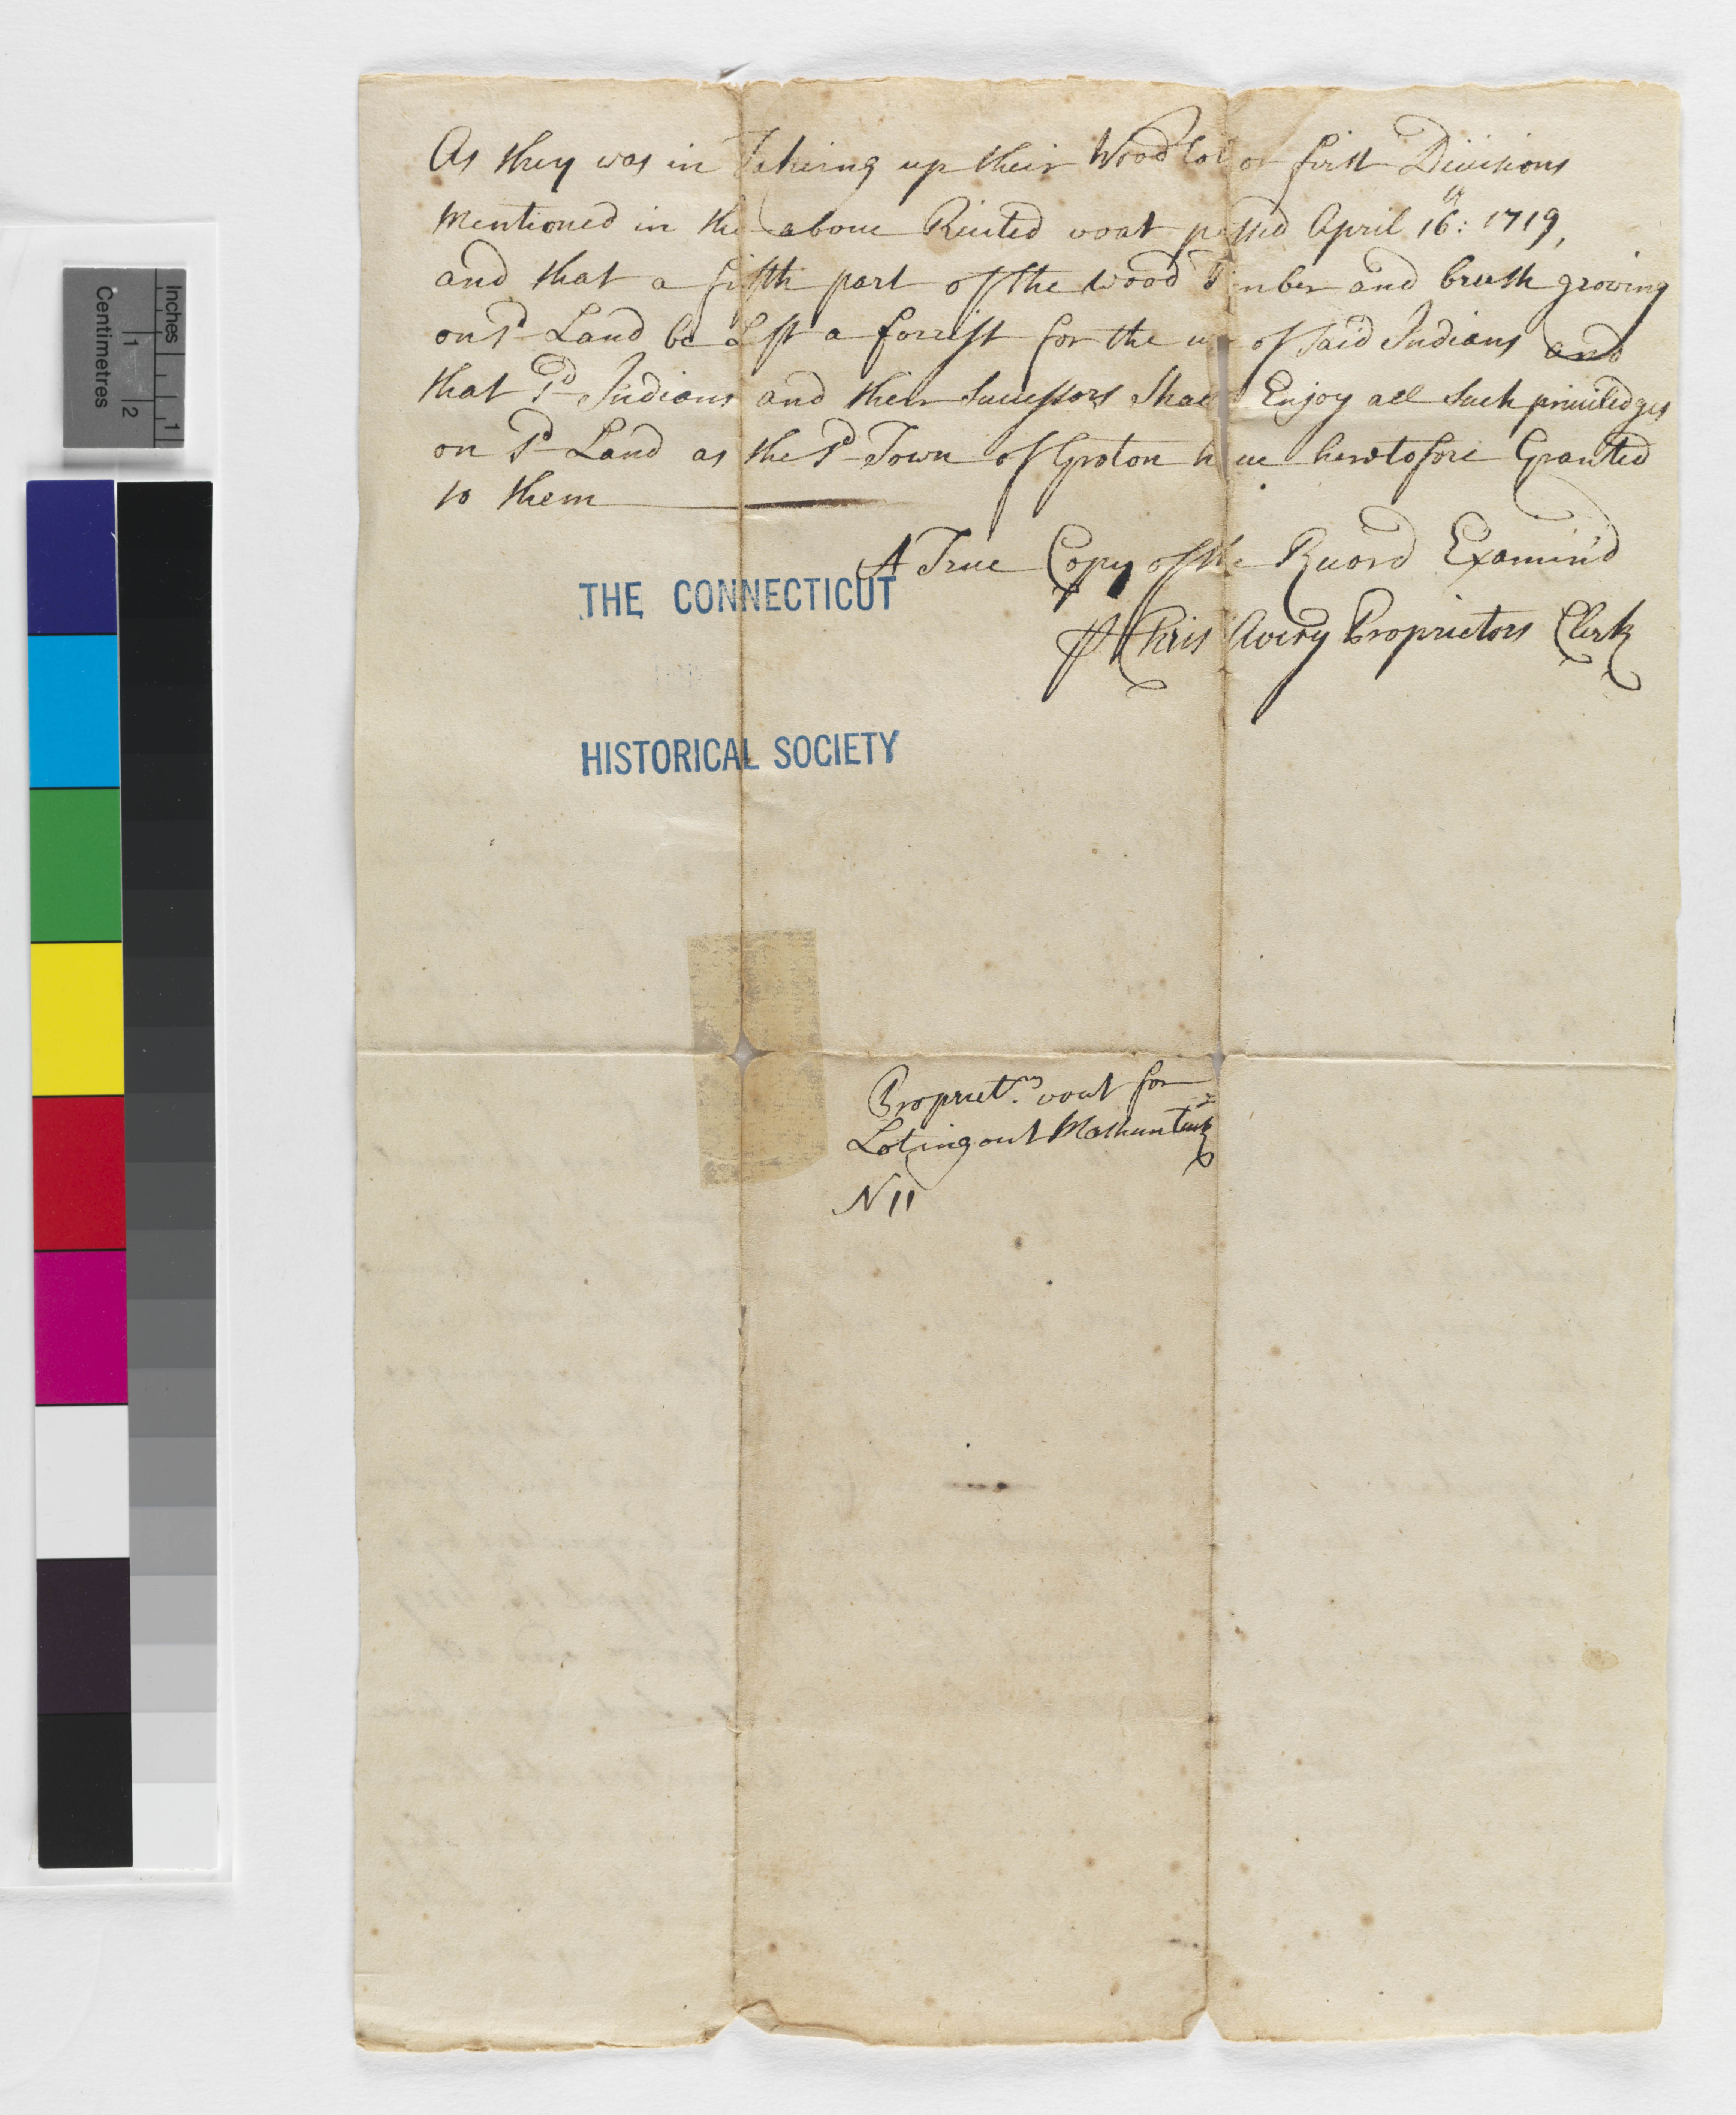 As they was in Takeing up their Wood lot or first Divisions
Mentioned in the above Recited voat passed April 16:th 1719,
and that a fifth part of the wood Timber and brush growing
on sd Land be Left a forrest for the use of said Indians and
that sd Indians and their Successors Shall Enjoy all Such priviledges
on sd Land as the sd Town of Groton have heretofore Granted
to them
A True Copy of the Record Examin'd
pr Chris Avery Proprietors Clerk
THE CONNECTICUT
HISTORICAL SOCIETY
Propriet.rs voat for
Loting out Mashuntuk
N 11
Inches
1
Centimetres
1
2